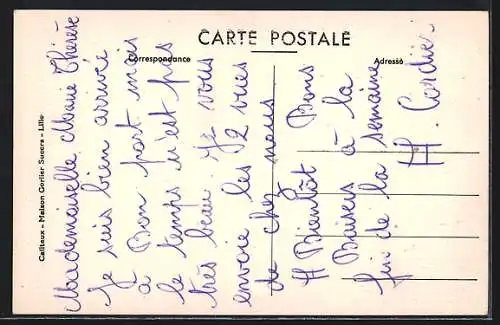 CARTE POSTALE
Correspondance
Adresse
Cailteux - Maison Gorlier Sueers - Lille
Mademoiselle Marie Thérèse
Je suis bien arrivée
à Bon port mais
le temps n'est pas
très beau. Je vous
envoie les 2 vues
de chez nous
A Bientôt Bons
Baisers à la
fin de la semaine
H. Cordier